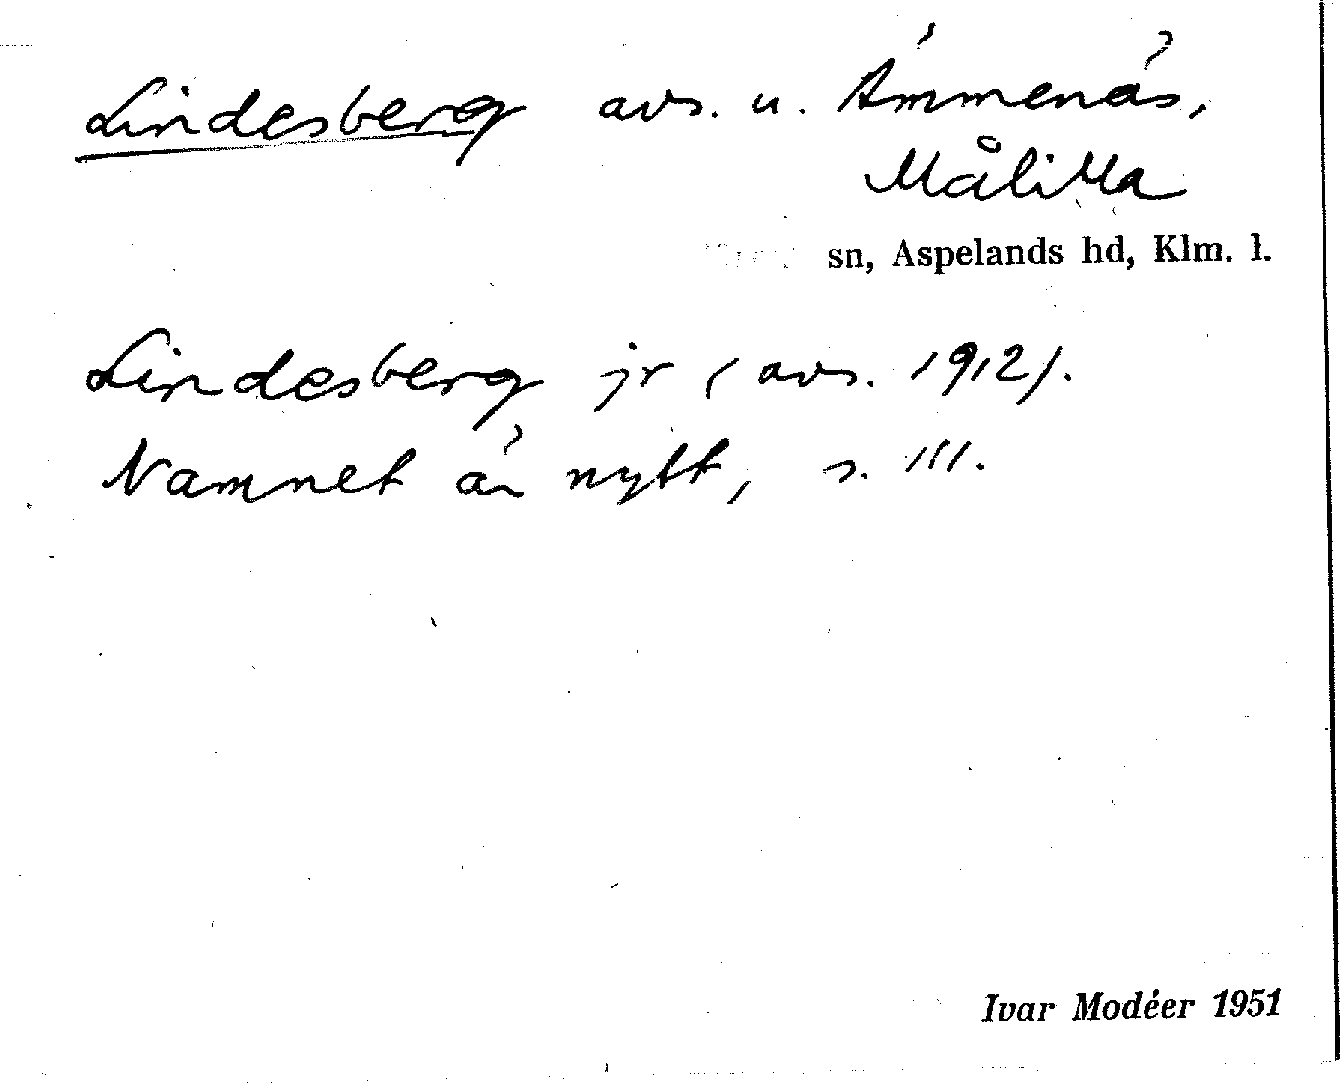 Lindesberg avs. u. Ämmenäs,
Målilla
sn, Aspelands hd, Klm. l.
Lindesberg jr (avs. 1912).
Namnet är nytt, s. 111.
Ivar Modéer 1951